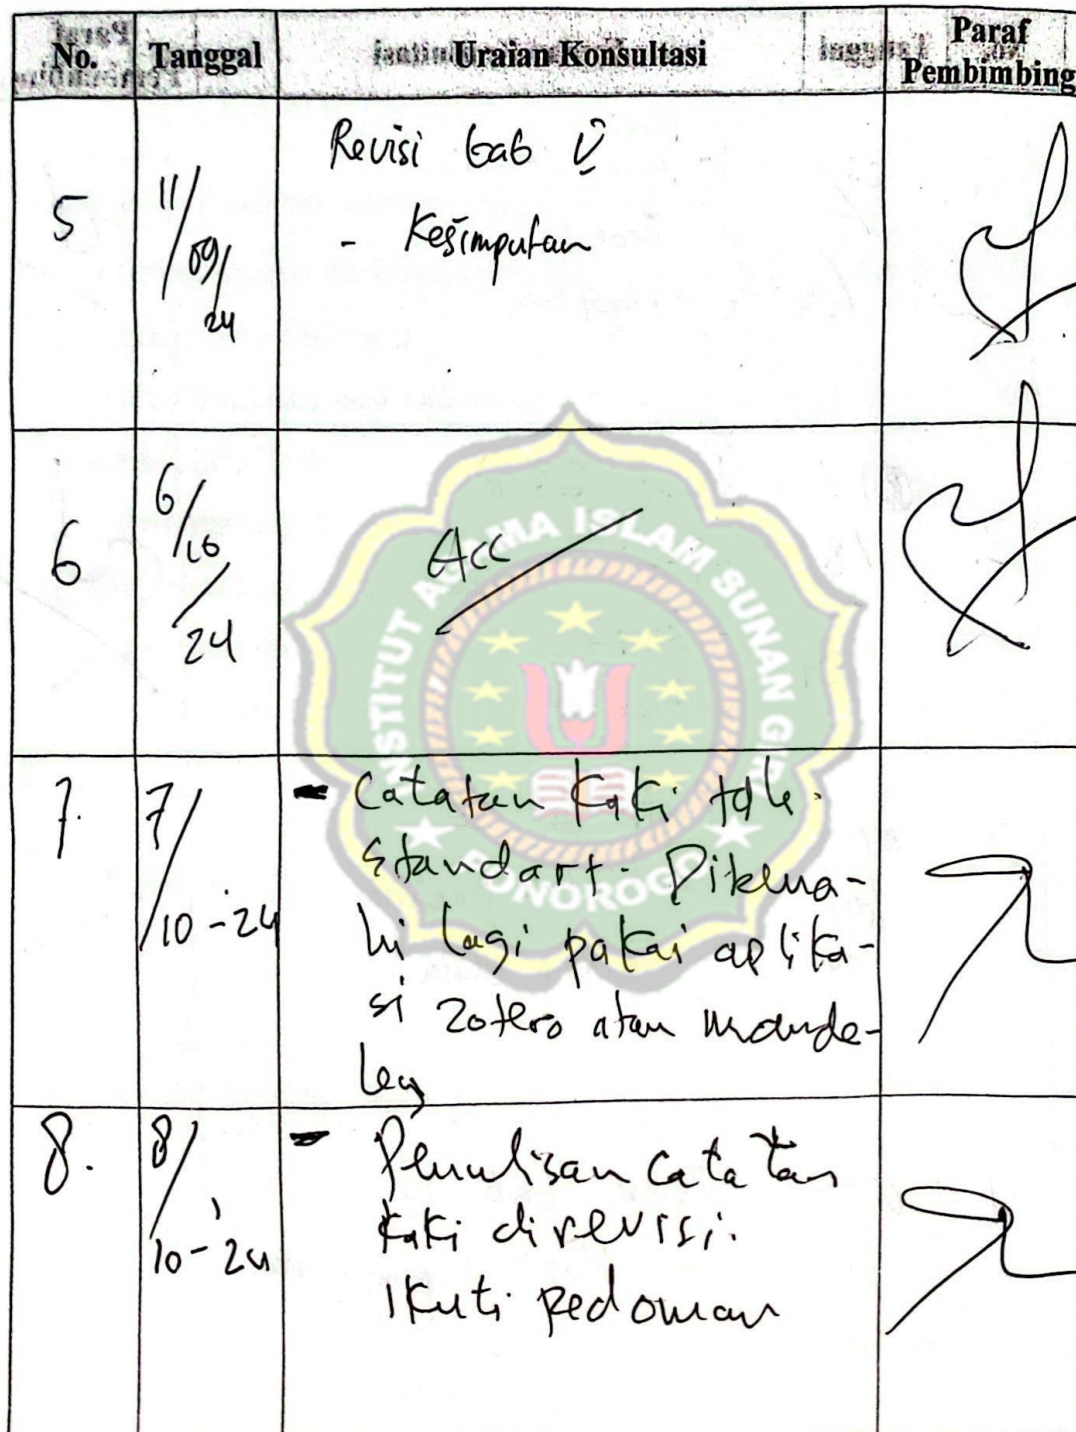 No. Tanggal Uraian Konsultasi Paraf Pembimbing
5 11/09/24 Revisi bab V
- Kesimpulan
6 6/10/24 Acc
7. 7/10-24 - Catatan kaki tdk
standart. Dikena-
hi lagi pakai aplika-
si zotero atau mende-
ley
8. 8/10-24 - Penulisan catatan
kaki direvisi.
Ikuti pedoman
INSTITUT AGAMA ISLAM SUNAN GIRI
PONOROGO